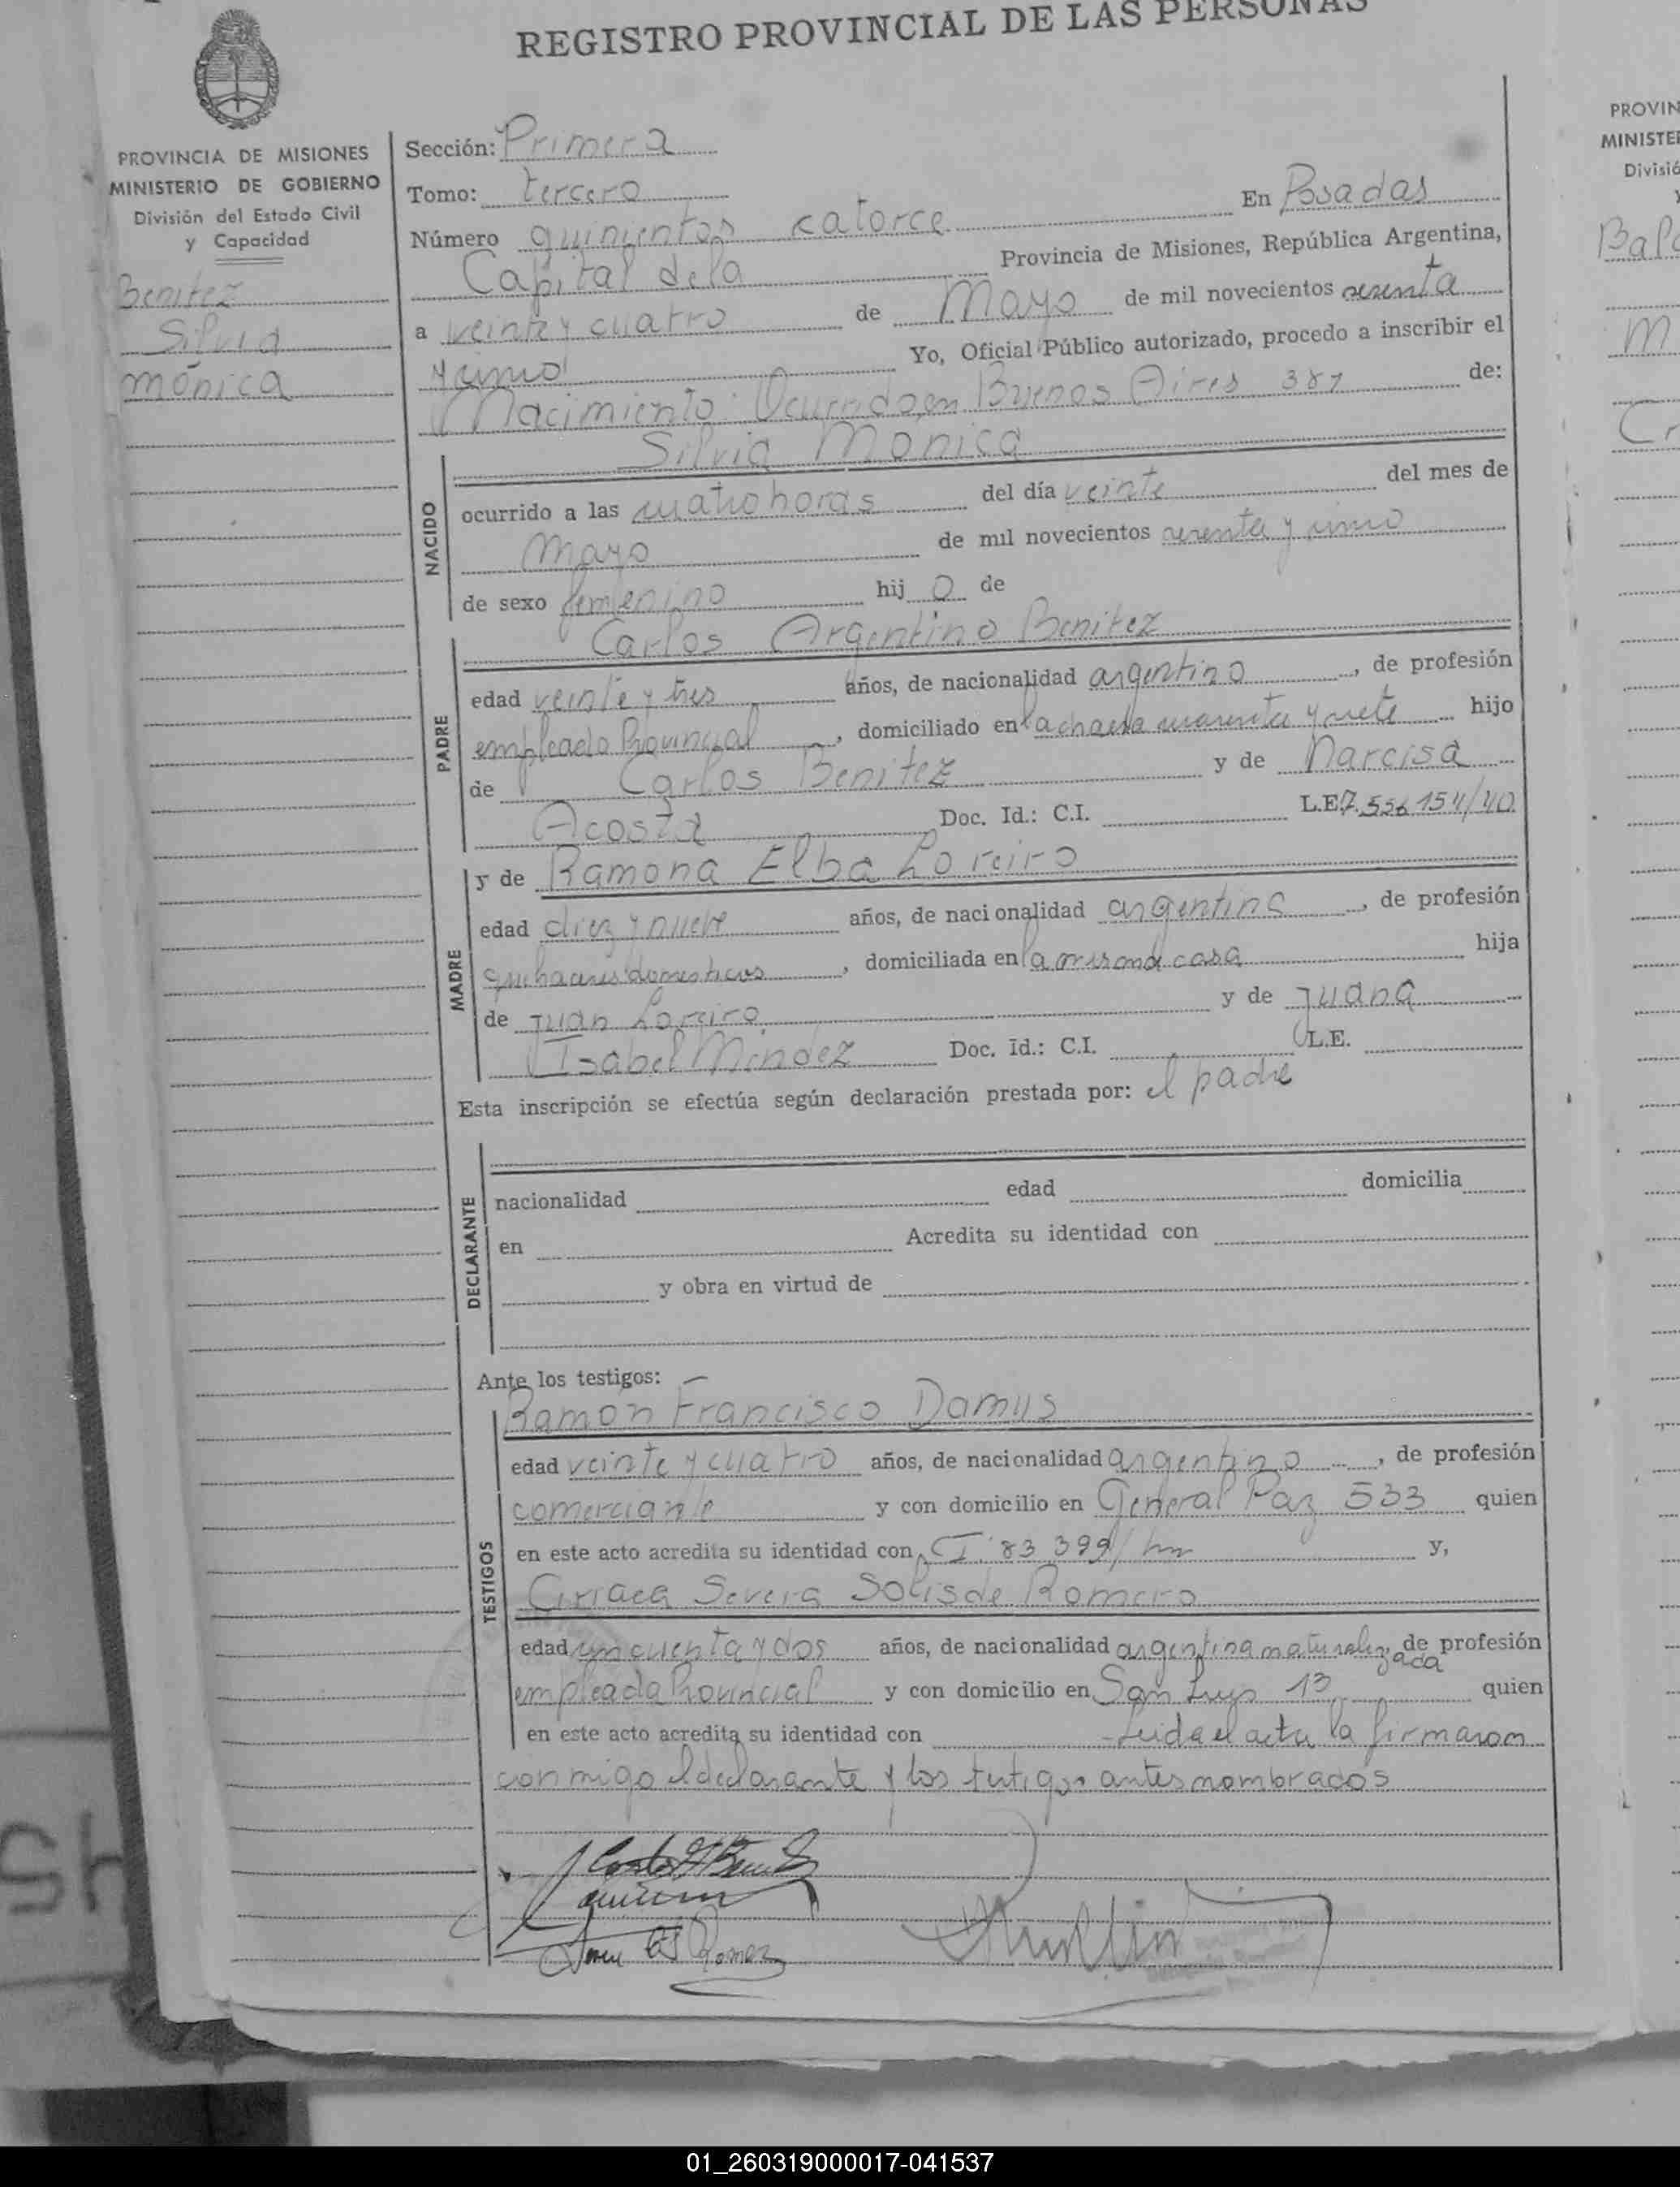 REGISTRO PROVINCIAL DE LAS PERSONAS
PROVINCIA DE MISIONES
MINISTERIO DE GOBIERNO
División del Estado Civil
y Capacidad
Benitez
Silvia
mónica
Sección: Primera
Tomo: tercero
En Posadas
Número quinientos catorce
Capital de la Provincia de Misiones, República Argentina,
a veinte y cuatro de Mayo de mil novecientos sesenta
y uno Yo, Oficial Público autorizado, procedo a inscribir el
Nacimiento: Ocurrido en Buenos Aires 387 de:
Silvia Mónica
NACIDO
ocurrido a las cuatro horas del día veinte del mes de
Mayo de mil novecientos sesenta y uno
de sexo femenino hij o de
Carlos Argentino Benitez
PADRE
edad veinte y tres años, de nacionalidad argentino, de profesión
empleado Provincial, domiciliado en la chacra cuarenta y siete hijo
de Carlos Benitez y de Narcisa
Acosta Doc. Id.: C.I. L.E. 7.556.154/40
y de Ramona Elba Loreiro
MADRE
edad diez y nueve años, de nacionalidad argentina, de profesión
quehaceres domesticos, domiciliada en la misma casa hija
de Juan Loreiro y de Juana
Isabel Mendez Doc. Id.: C.I. L.E.
Esta inscripción se efectúa según declaración prestada por: el padre
DECLARANTE
nacionalidad edad domicilia
en Acredita su identidad con
y obra en virtud de
Ante los testigos:
Ramón Francisco Damus
TESTIGOS
edad veinte y cuatro años, de nacionalidad argentino, de profesión
comerciante y con domicilio en General Paz 533 quien
en este acto acredita su identidad con C.I. 83 399/ y,
Ciriaca Severa Solis de Romero
edad cincuenta y dos años, de nacionalidad argentina naturalizada, de profesión
empleada Provincial y con domicilio en San Luys 13 quien
en este acto acredita su identidad con Leida el acta la firmaron
conmigo el declarante y los testigos antes nombrados
PROVIN
MINISTE
Divisió
01_260319000017-041537